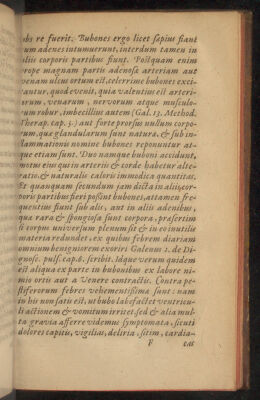 abs re fuerit. Bubones ergo licet sæpius fiant
cum adenes intumuerunt, interdum tamen in
aliis corporis partibus fiunt. Postquam enim
prope magnam partis adenosæ arteriam aut
venam ulcus ortum est, celerrime bubones exci-
tantur, quod venit, quia valentius est arteri-
orum, venarum, nervorum atque musculo-
rum robur, imbecillius autem (Gal. 13. Method.
Therap. cap. 5.) aut forte prorsus nullum corpo-
rum, quæ glandularum sunt natura, & sub in-
flammationis nomine bubones reponuntur at-
que etiam sunt. Duo namque buboni accidunt,
motus ejus qui in arteriis & corde habetur alte-
ratio, & naturalis caloris immodica quantitas.
Et quanquam secundum jam dicta in aliis cor-
poris partibus fieri possint bubones, attamen fre-
quentius fiunt sub alis, aut in aliis adenibus,
quæ rara & spongiosa sunt corpora, præsertim
si corpus universum plenum sit & eo inutilis
materia redundet, ex quibus febrem diariam
omnium benigniorem exoriri Galenus 1. de Di-
gnosc. puls. cap. 8. scribit. Idque verum quidem
est aliqua ex parte in bubonibus ex labore ni-
mio ortis aut a Venere contractis. Contra pe-
stiferorum febres vehementissimæ sunt: nam
in his non satis est, ut bubo labefactet ventricu-
li actionem & vomitum irritet, sed & alia mul-
ta gravia afferre videmus symptomata, sicuti
dolores capitis, vigilias, deliria, sitim, cardia-
F cas